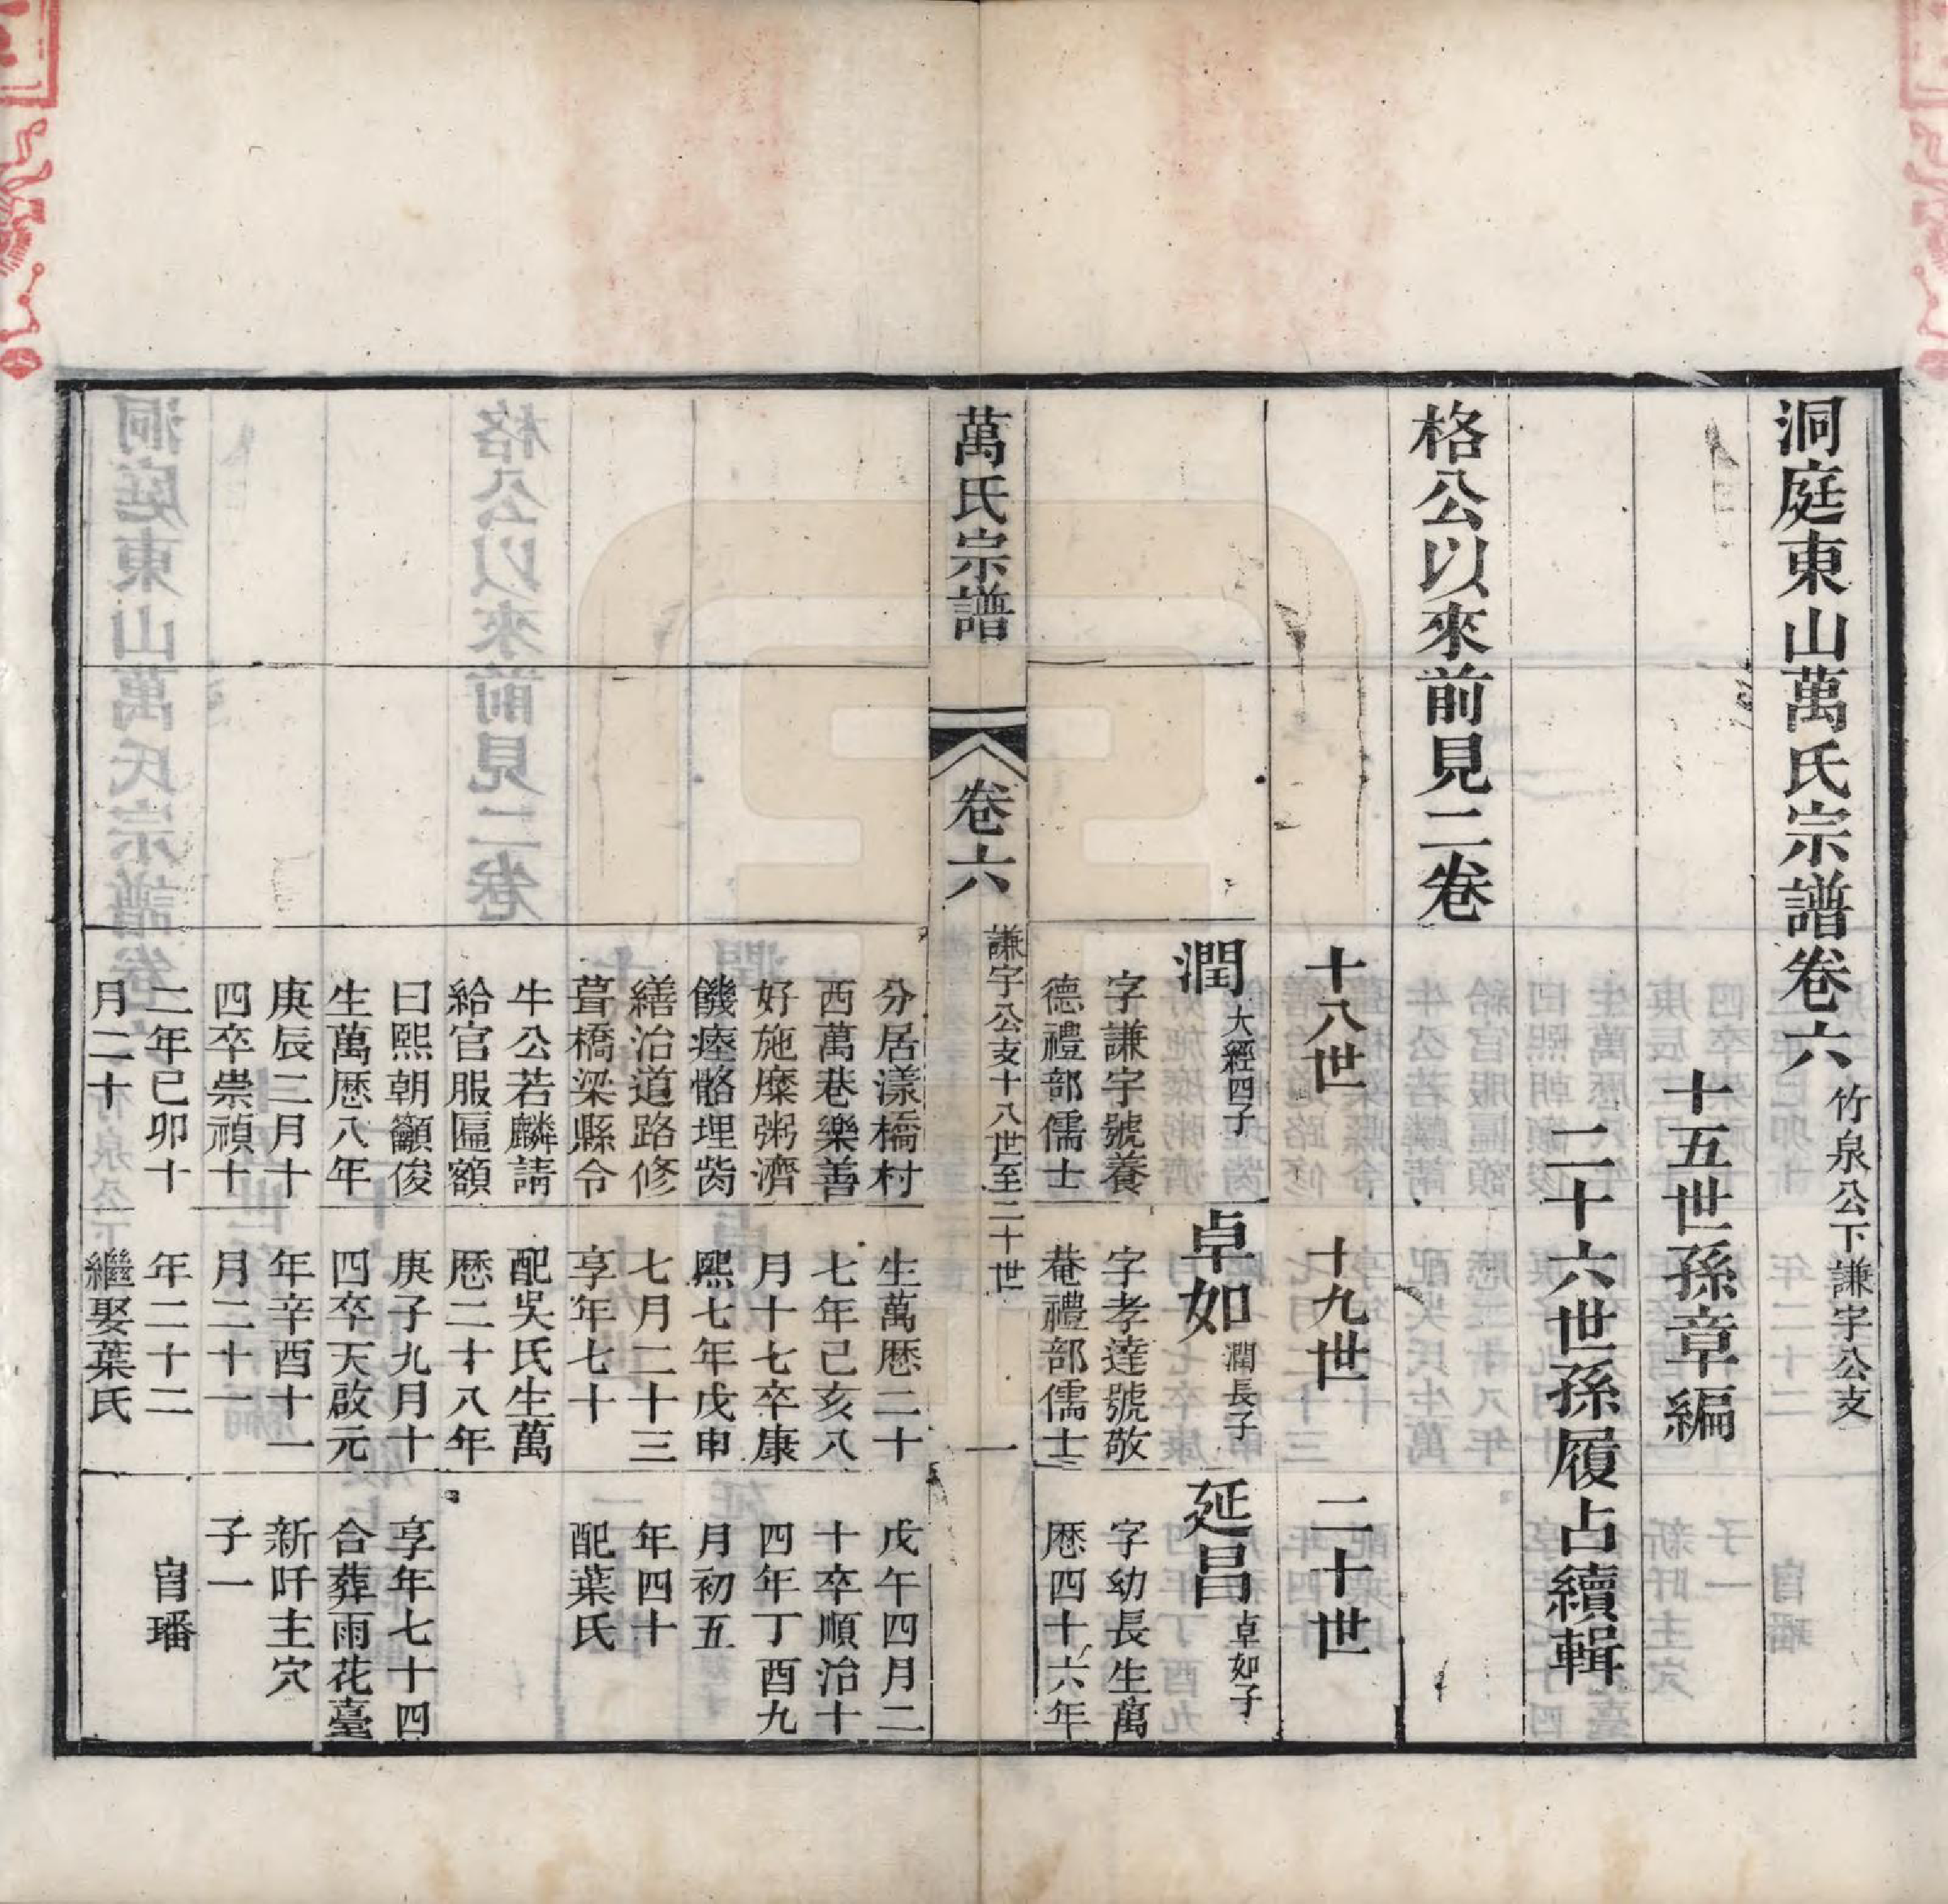 洞庭東山萬氏宗譜卷六 竹泉公下謙宇公支
十五世孫章編
二十六世孫履占續輯
格公以來前見二卷
十八世
十九世
二十世
潤 大經四子
字謙宇號養
德禮部儒士
分居漾橋村
西萬巷樂善
好施糜粥濟
饑瘞骼埋胔
繕治道路修
葺橋梁縣令
牛公若麟請
給官服匾額
曰熙朝籲俊
生萬歷八年
庚辰二月十
四卒崇禎十
二年己卯十
月二十
卓如 潤長子
字孝達號敬
菴禮部儒士
生萬歷二十
七年己亥八
月十七卒康
熙七年戊申
七月二十三
享年七十
配吳氏生萬
歷二十八年
庚子九月十
四卒天啟元
年辛酉十一
月二十一
年二十二
繼娶葉氏
延昌 卓如子
字幼長生萬
歷四十六年
戊午四月二
十卒順治十
四年丁酉九
月初五
年四十
配葉氏
享年七十四
合葬雨花臺
新阡主穴
子一
自璠
萬氏宗譜
卷六
謙宇公支十八世至二十世
一